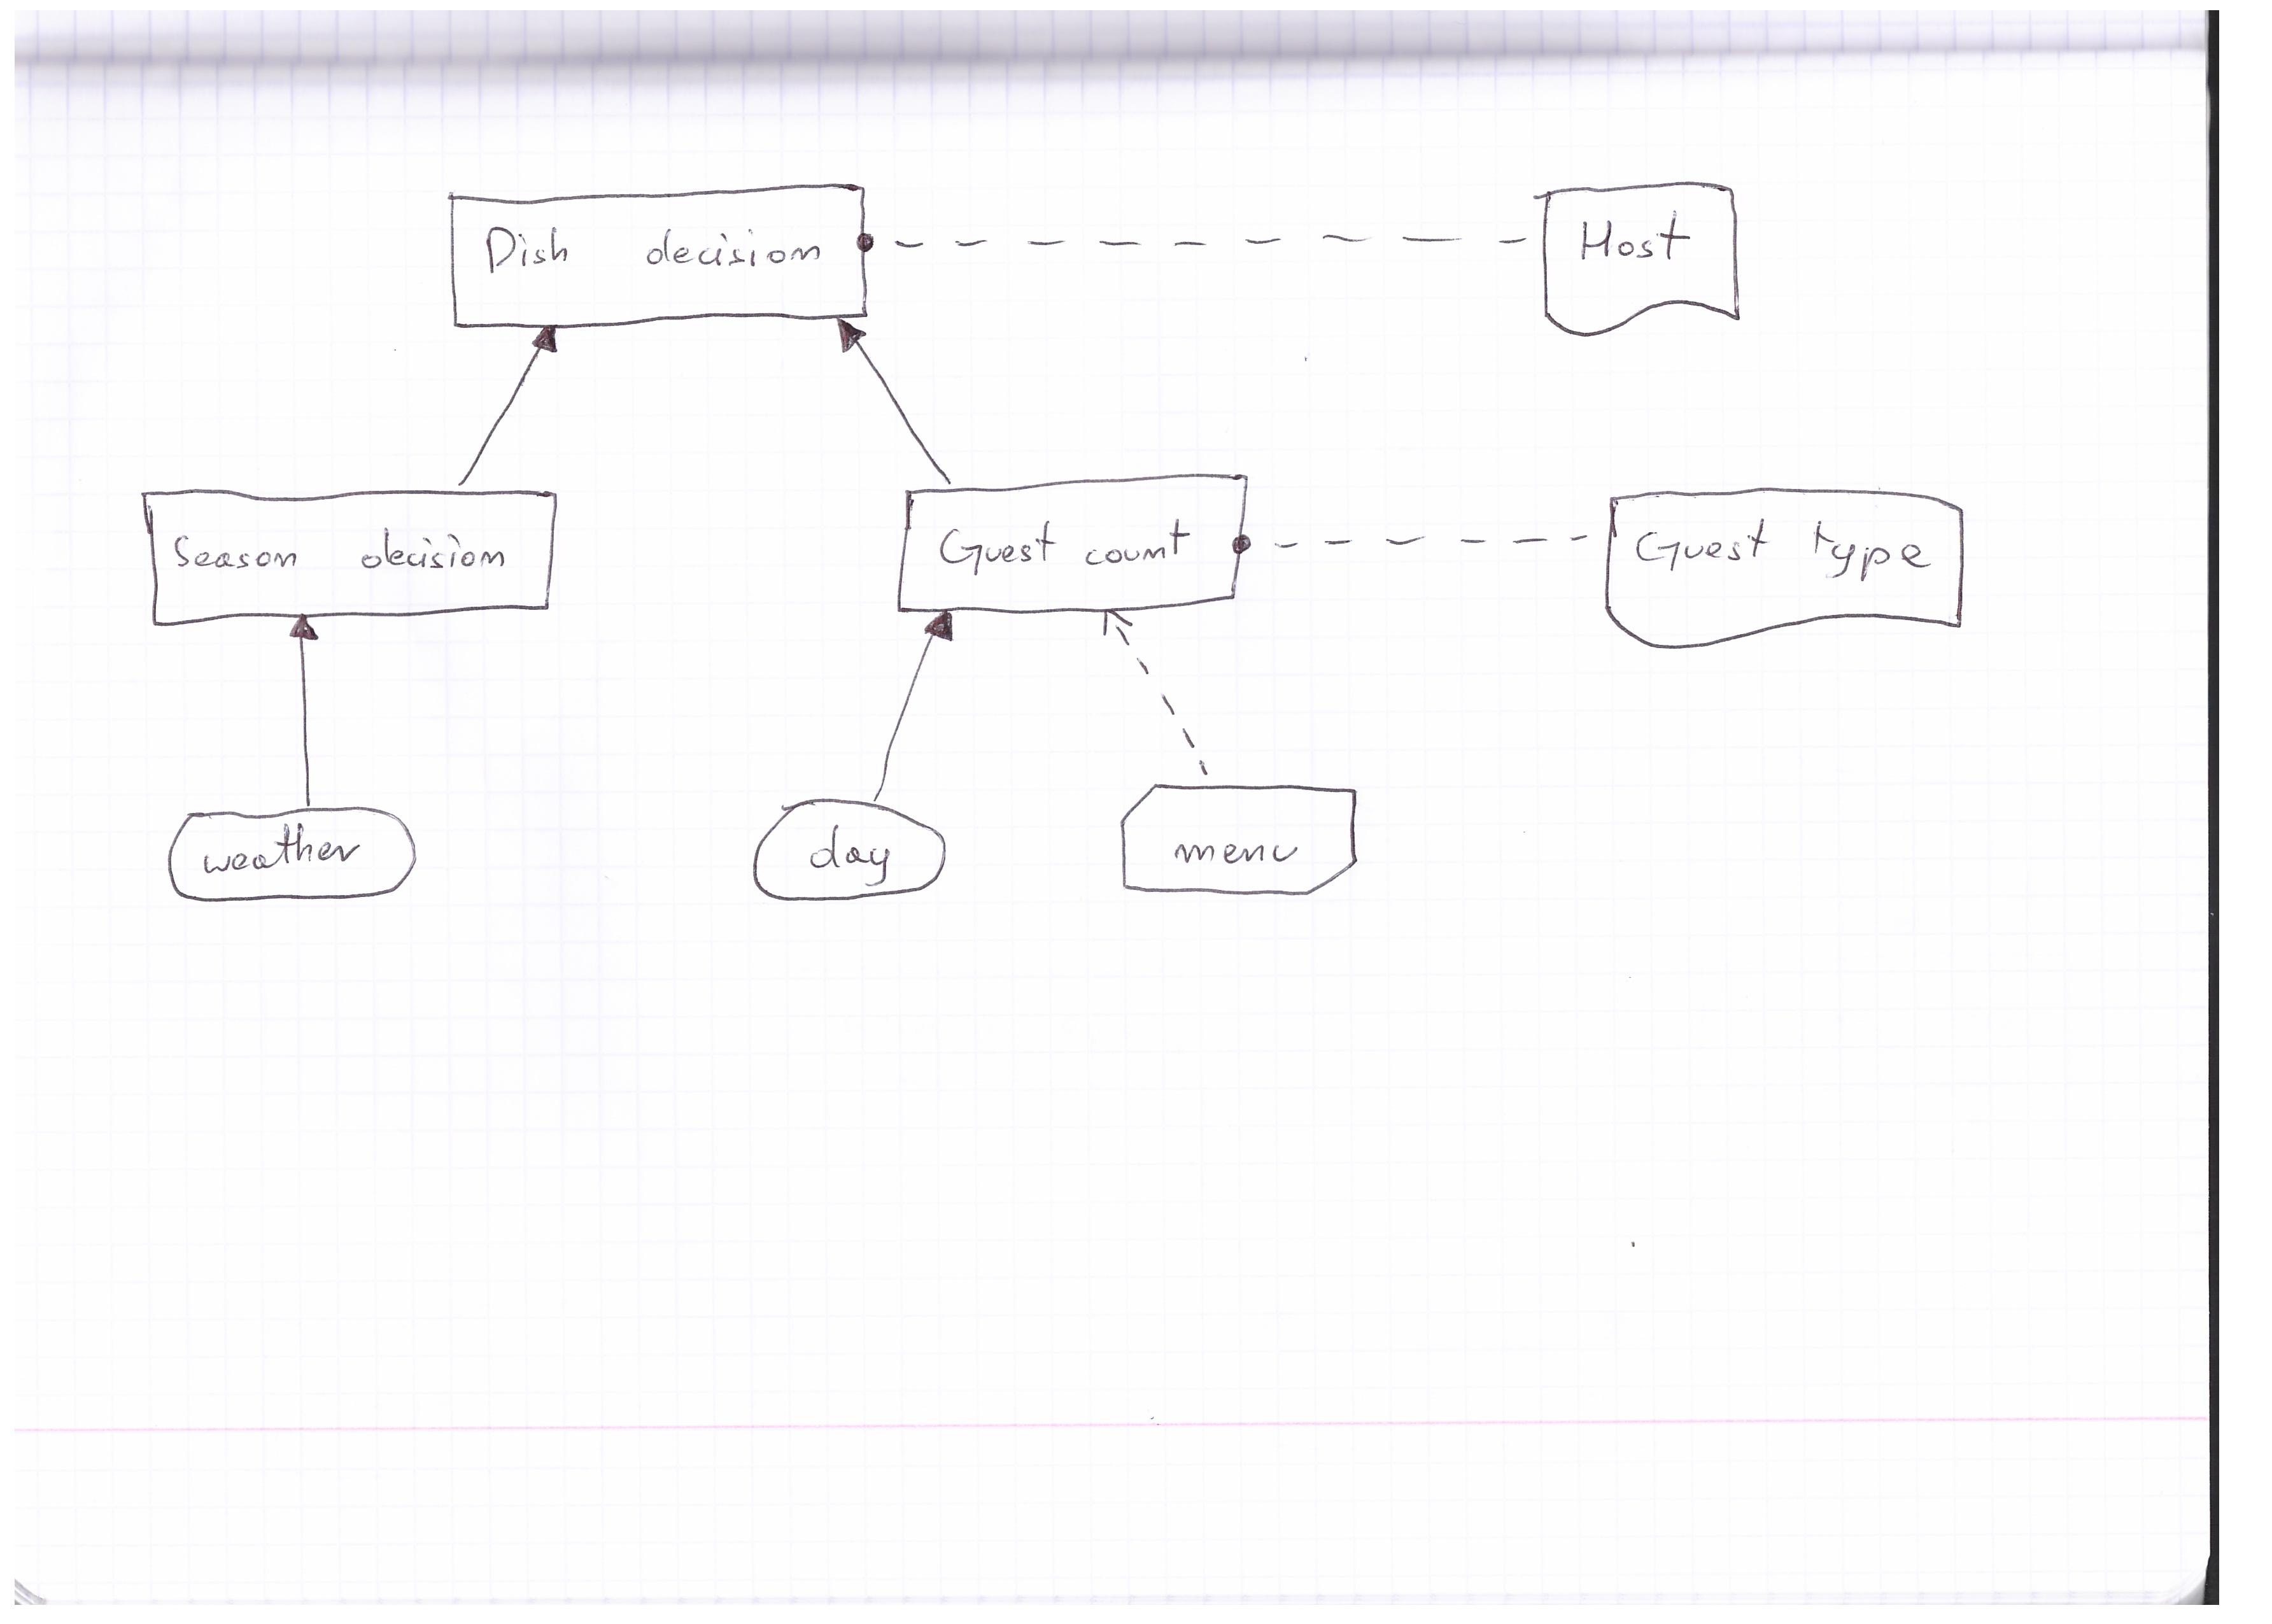 Dish decision
Host
Season decision
Guest count
Guest type
weather
day
menu